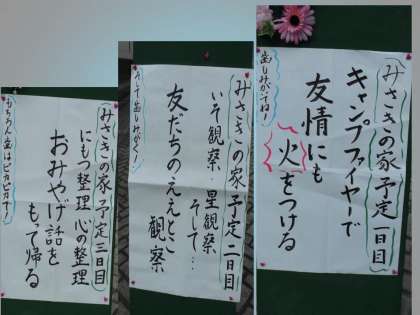 みさきの家予定一日目
キャンプファイヤーで
友情にも
火をつける
歯みがきね!
みさきの家予定二日目
いそ観察・星観察
そして…
友だちのええとこ
観察
みさきの家予定三日目
にもつ整理心の整理
おみやげ話を
もって帰る
もちろん歯はピカピカす!